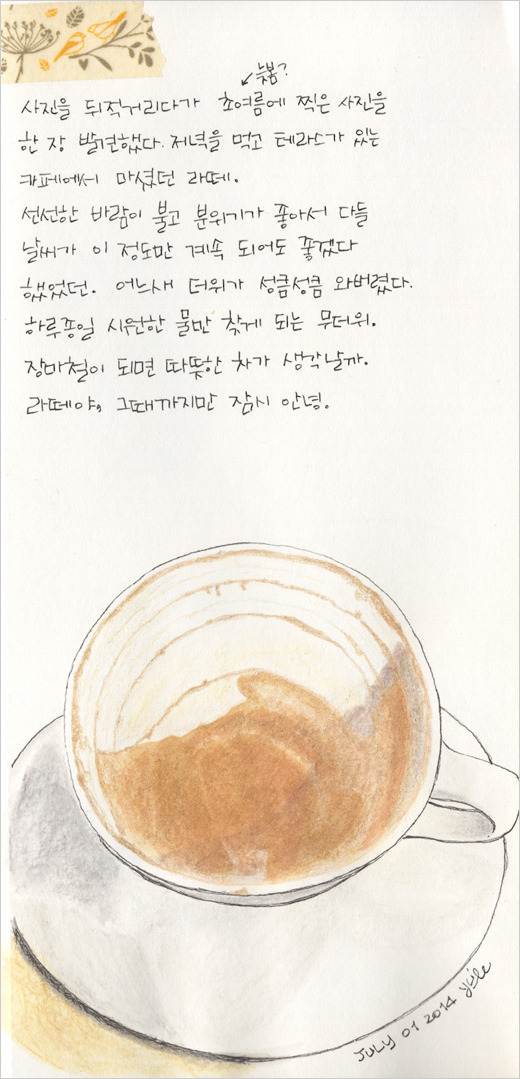 늦봄?
사진을 뒤적거리다가 초여름에 찍은 사진을
한 장 발견했다. 저녁을 먹고 테라스가 있는
카페에서 마셨던 라떼.
선선한 바람이 불고 분위기가 좋아서 다들
날씨가 이 정도만 계속 되어도 좋겠다
했었던. 어느새 더위가 성큼성큼 와버렸다.
하루종일 시원한 물만 찾게 되는 무더위.
장마철이 되면 따뜻한 차가 생각날까.
라떼야, 그때까지만 잠시 안녕.
JULY 01 2014